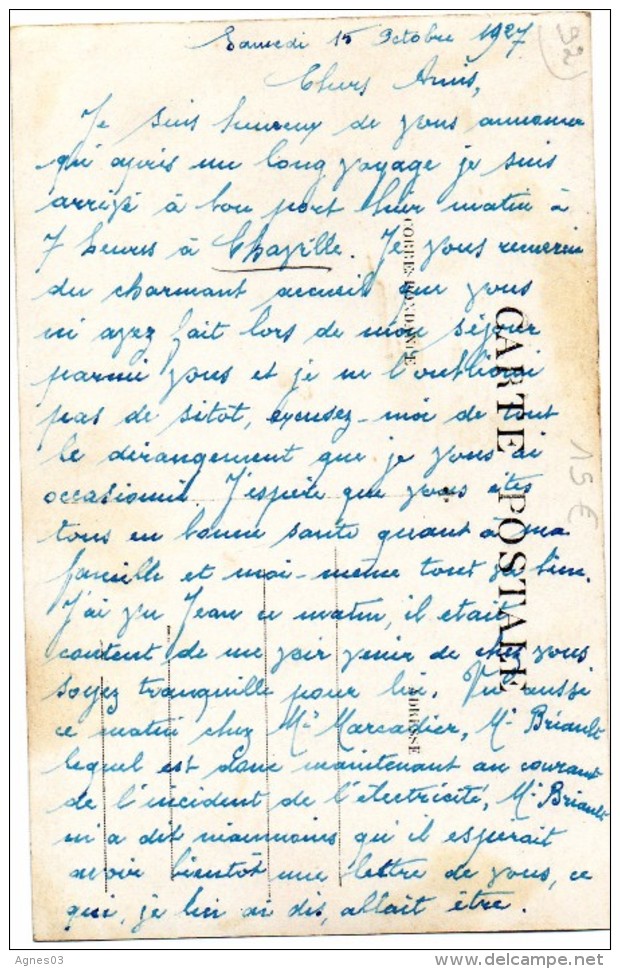 Samedi 15 Octobre 1927
92
Chers Amis,
Je suis heureux de vous annoncer
qu'après un long voyage je suis
arrivé à bon port hier matin à
7 heures à Chaville. Je vous remercie
du charmant accueil que vous
m'avez fait lors de mon séjour
parmi vous et je ne l'oublierai
pas de sitôt, excusez-moi de tout
le dérangement que je vous ai
occasionné. J'espère que vous êtes
tous en bonne santé quant à ma
famille et moi-même tout va bien.
J'ai vu Jean ce matin, il était
content de me voir venir de chez vous
soyez tranquille pour lui. Vu aussi
ce matin chez Mr Marcadier, Mr Briault
lequel est donc maintenant au courant
de l'incident de l'électricité, Mr Briault
m'a dit néanmoins qu'il espérait
avoir bientôt une lettre de vous, ce
qui, je lui ai dit, allait être.
CARTE POSTALE
CORRESPONDANCE
ADRESSE
15 €
Agnes03
www.delcampe.net